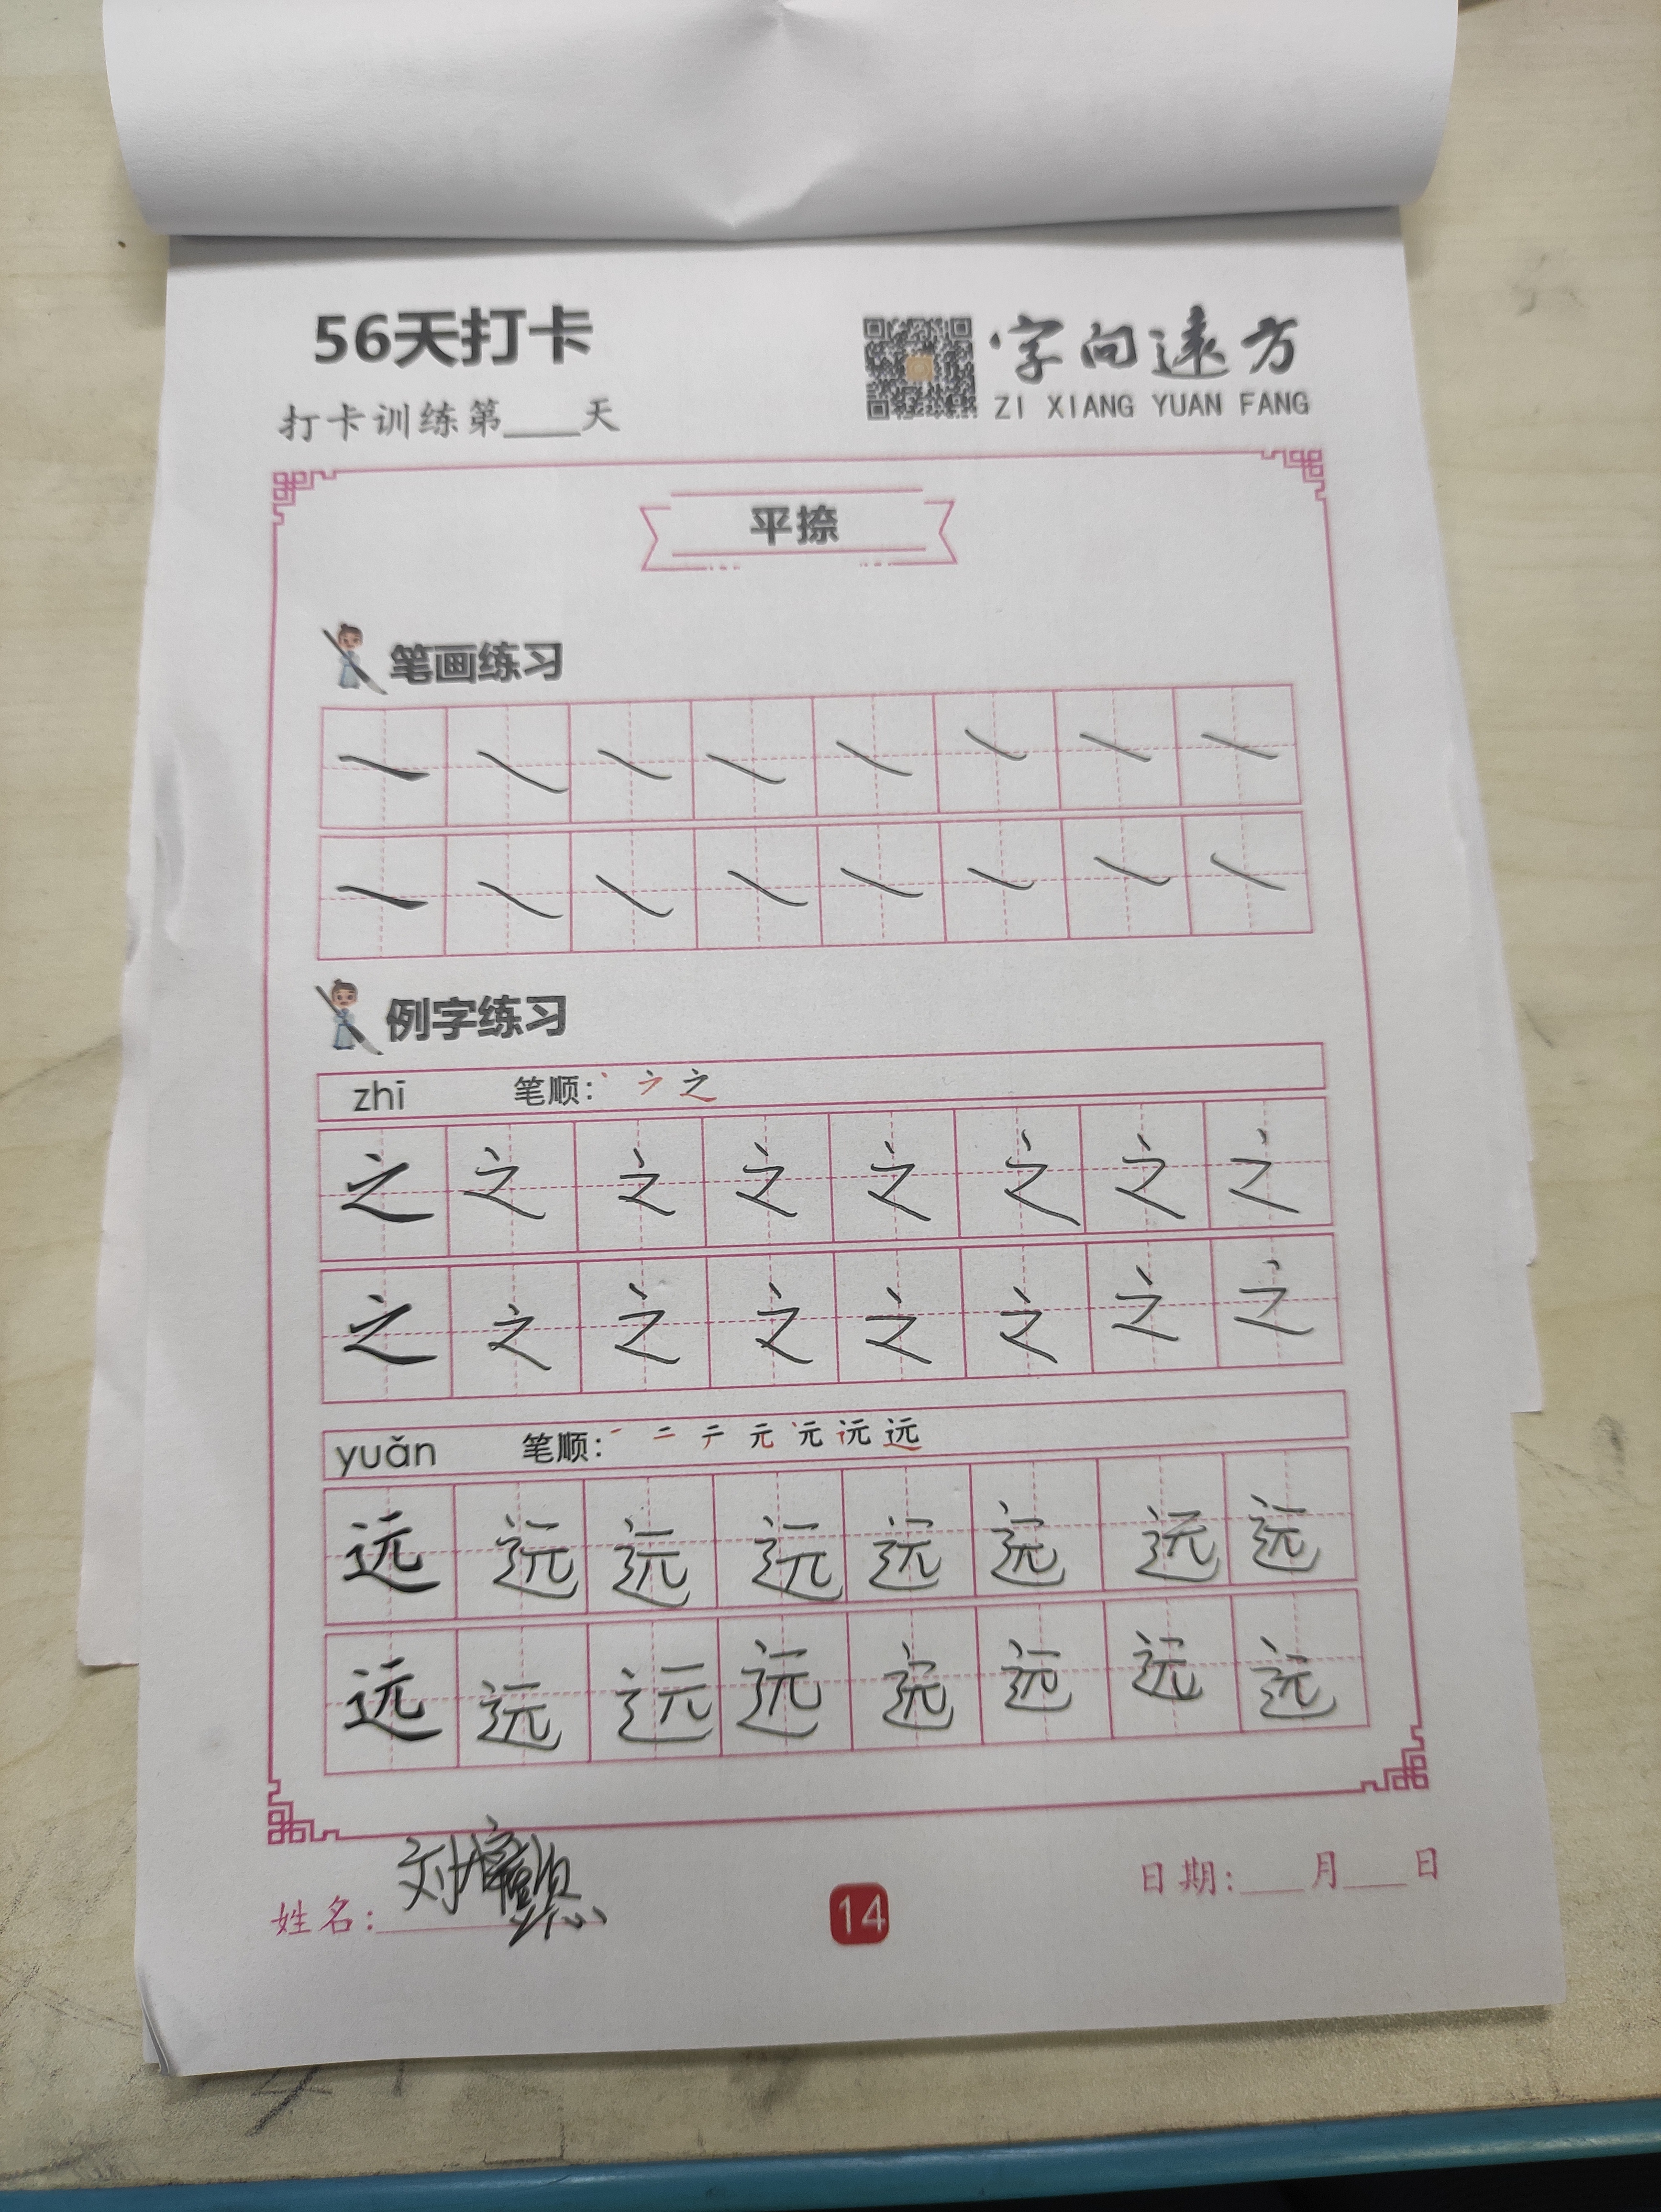 56天打卡
打卡训练第____天
字向远方
ZI XIANG YUAN FANG
平捺
笔画练习
例字练习
zhī 笔顺: 丶 ㇇ 之
之 之 之 之 之 之 之 之
之 之 之 之 之 之 之 之
yuǎn 笔顺: 一 二 テ 元 远
远 远 远 远 远 远 远 远
远 远 远 远 远 远 远 远
姓名: 刘
14
日期:___月___日